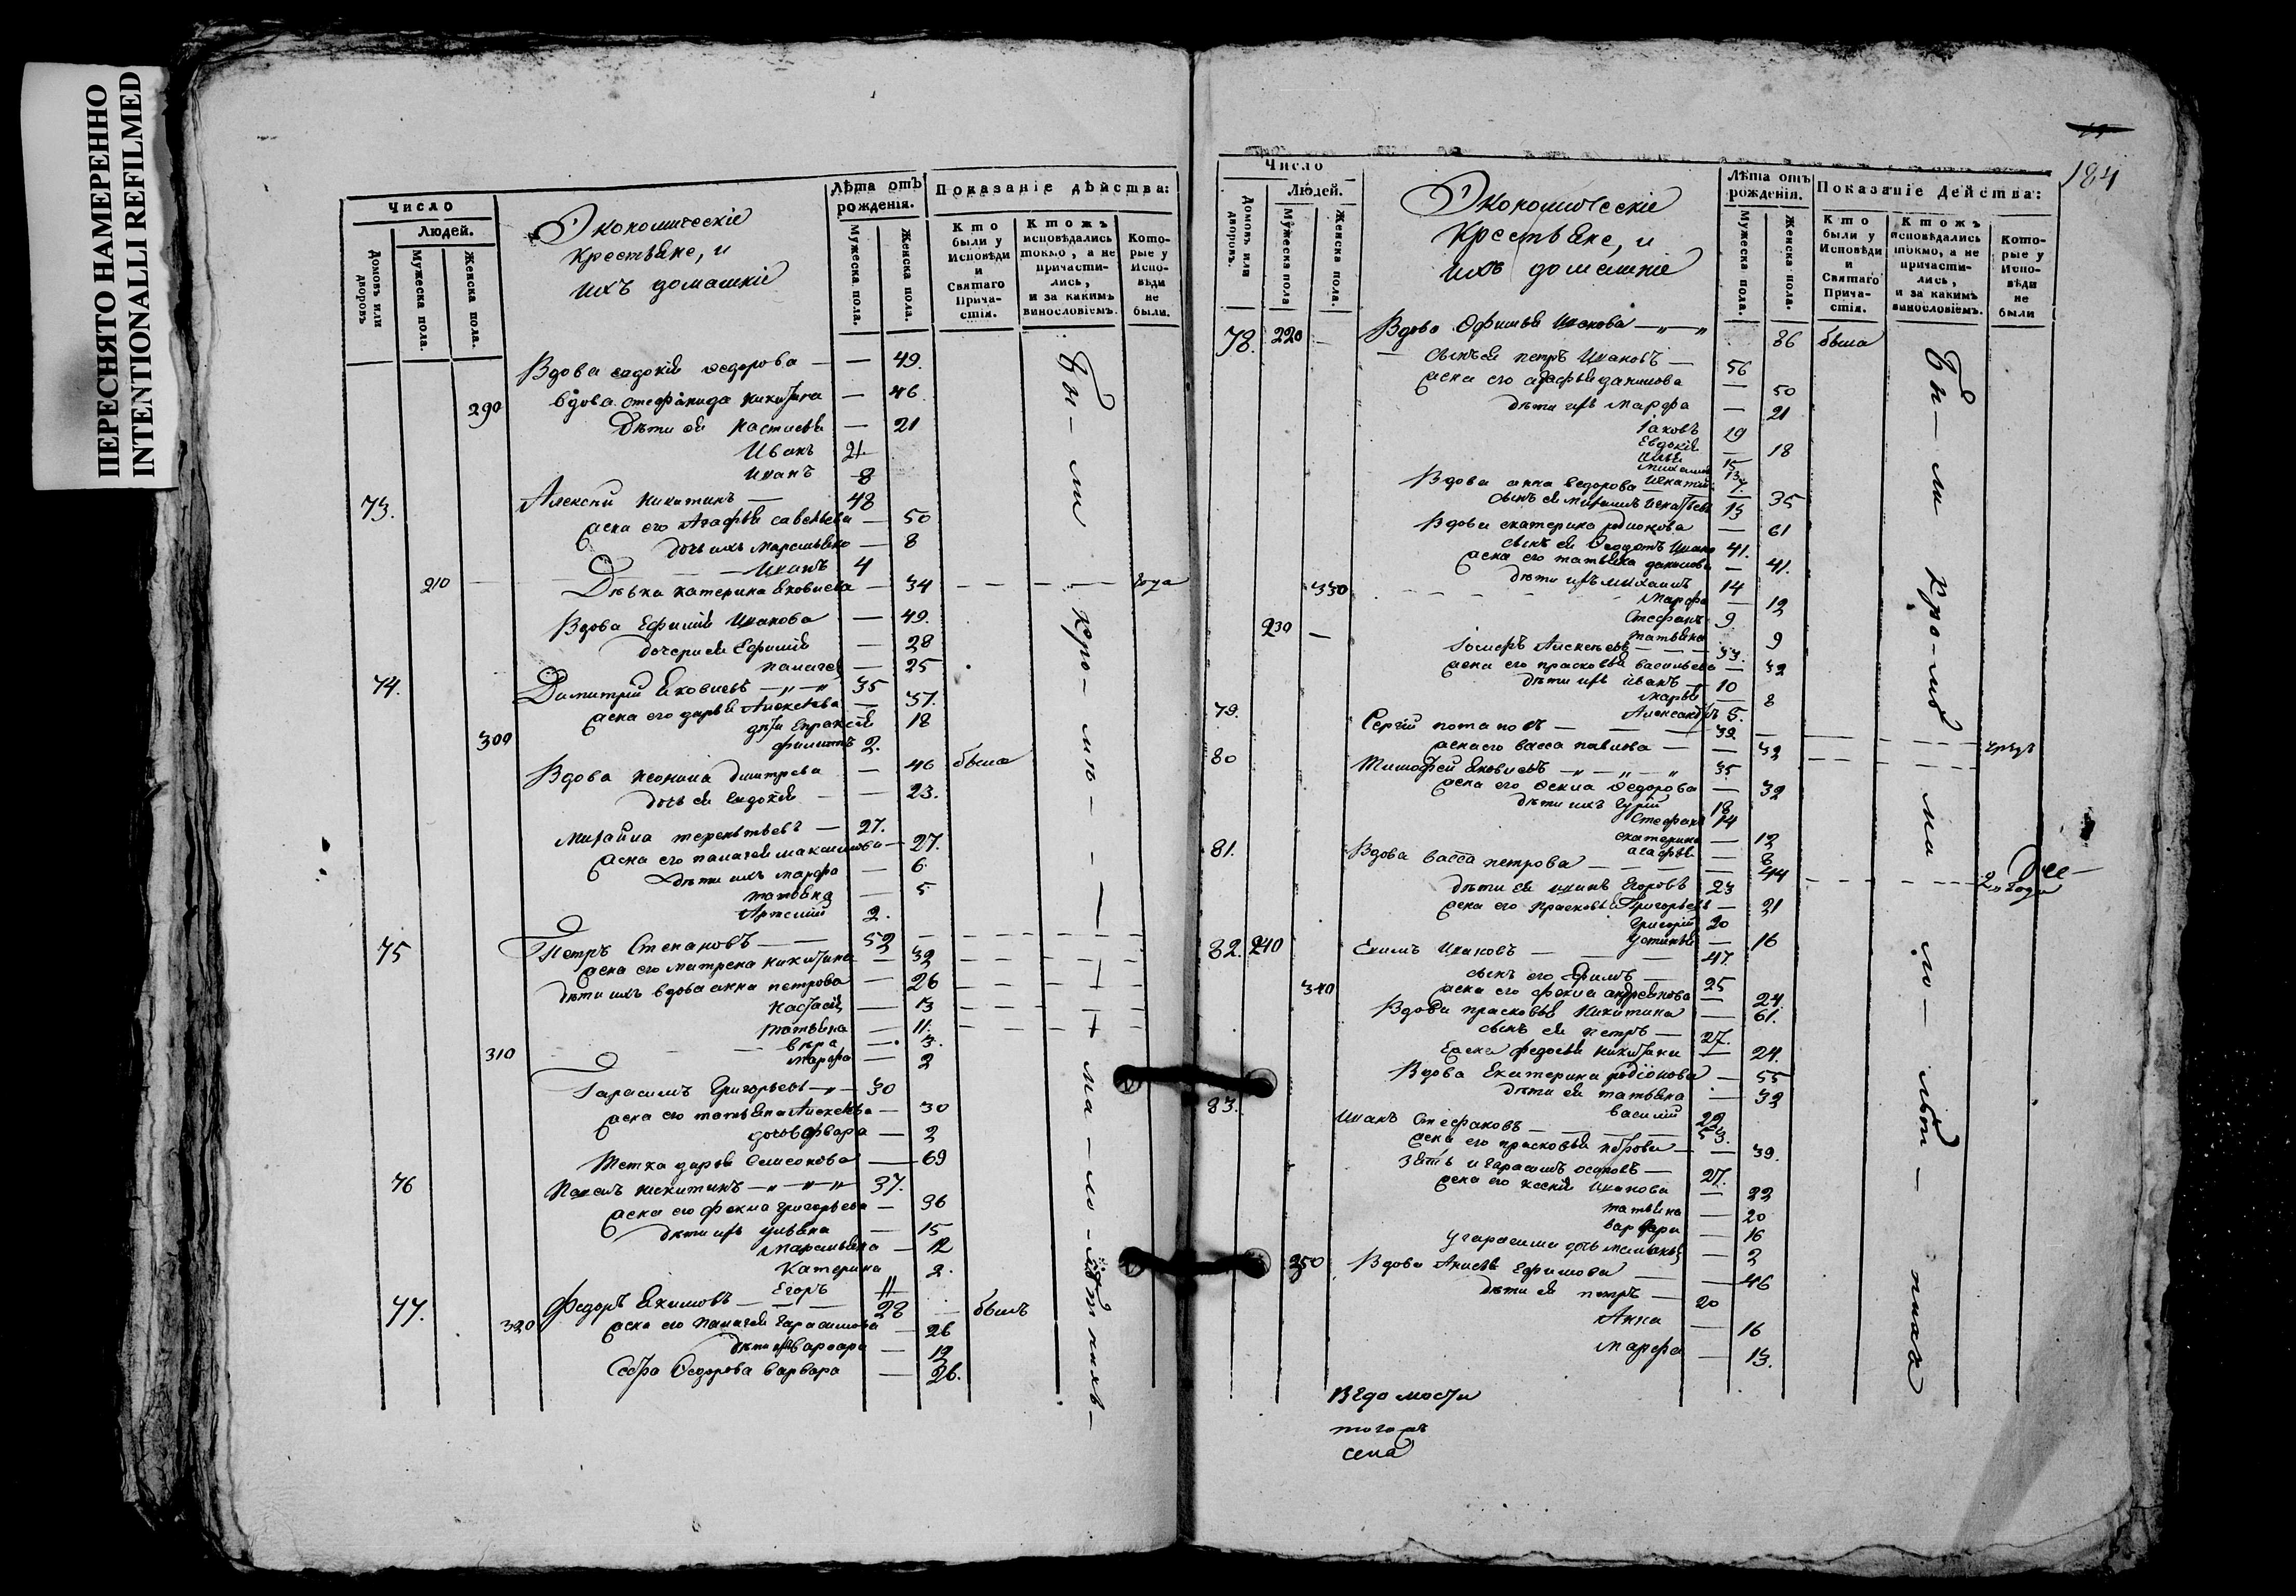 ПЕРЕСНЯТО НАМЕРЕННО
INTENTIONALLI REFILMED
Число
Людей.
Домовъ или дворовъ
Мужеска пола.
Женска пола.
Экономическіе
крестьяне, и
ихъ домашніе
Лѣта отъ рожденія.
Мужеска пола.
Женска пола.
Показаніе дѣйства:
Кто были у Исповѣди и Святаго Прича-стія.
Ктожъ исповѣдались токмо, а не причасти-лись, и за какимъ винословіемъ.
Кото-рые у Испо-вѣди не были.
Вдова евдокія ѳедорова — — 49.
290 вдова стефанида никитина — 46
дѣти ея настасья — 21
Иванъ 21
иванъ 8
73. Алексѣй никитинъ — 48
жена его Агафья савельева — 50
дочь ихъ маремьяна — 8
иванъ 4
210 Дѣвка катерина яковлева — 34
Вдова Ефимія иванова — 49.
дочери ея Ефимія — 28
палагея — 25
74. Димитрій яковлевъ 35
жена его дарья Алексѣева — 37.
дѣти Епраксія 18
300 филиппъ 2.
Вдова неонила дмитрева — 46 была
дочь ея евдокія — 23.
михайла терентьевъ — 27.
жена его палагея максимова — 27.
дѣти ихъ марфа — 6
татьяна — 5
Артемій 2.
75 Петръ Степановъ — 52
жена его матрена никитина — 32
дѣти ихъ вдова анна петрова — 26
настасія — 13
татьяна — 11.
вѣра — 3.
310 марфа — 2
Гарасимъ Григорьевъ — 30
жена его татьяна Алексѣева — 30
дочь варвара — 2
Тетка дарья Семенова — 69
76 Павелъ никитинъ — 37.
жена его фекла григорьева — 36
дѣти ихъ ульяна — 15
маремьяна — 12
Катерина 2.
Егоръ 11
77. Федоръ Акимовъ — 28 — былъ
320 жена его Палагея гарасимова 26
дѣти ихъ варвара — 12
Сестра Ѳедорова варвара — 26.
184
Число
Людей.
Домовъ или дворовъ.
Мужеска пола
Женска пола.
Экономическіе
крестьяне, и
ихъ домашніе
Лѣта отъ рожденія.
Мужеска пола.
Женска пола.
Показаніе действа:
Кто были у Исповѣди и Святаго Прича-стія.
Ктожъ исповѣдались токмо, а не причасти-лись, и за какимъ винословіемъ.
Кото-рые у Испо-вѣди не были
78. 220 — Вдова Офимья иванова — 86 была
сынъ ея петръ ивановъ — 56
жена его агафья данилова — 50
дѣти ихъ марфа — 21
Іаковъ 19
Евдокія — 18
илья 15
михаилъ 13
игнатій
Вдова анна ѳедорова — 35
сынъ ея 15
Вдова екатерина родіонова — 61
сынъ ея Ѳедотъ ивано 41.
жена его татьяна данилова — 41.
330 дѣти ихъ михаилъ 14
марфа — 12
Стефанъ 9.
230 — татьяна 9
Іосифъ Алексѣевъ 33.
жена его прасковья васильева — 32
дѣти ихъ иванъ — 10
марья — 8
Александръ 5.
79. Сергій потаповъ — 32
жена его васса павлова — 32
80 Тимофей яковлевъ 35
жена его ѳекла ѳедорова — 32
дѣти ихъ гурій 18
Стефанъ 14
екатерина — 12
агафья — 8
81. Вдова васса петрова — 44
дѣти ея иванъ Егоровъ 23
жена его Прасковья Григорьева — 21
григорій 20
устинья — 16
82. 240 Екимъ ивановъ — 47.
сынъ его Ефимъ — 25
340 жена его фекла андреянова — 24.
Вдова прасковья Никитина — 61.
сынъ ея петръ — 27.
жена федосья никитина — 24.
Вдова Екатерина родіонова — 55
дѣти ея татьяна — 32
василій 22
83. иванъ Стефановъ — 53.
жена его прасковья петрова — 39.
зять и гарасимъ осиповъ — 27.
жена его ксенія иванова — 22
татьяна — 20
варвара — 16
у гарасима дочь маланья — 2
350 Вдова Анисья Ефимова — 46
дѣти ея петръ — 20
Анна — 16
марфа — 13.
Ведомости
тогожъ
села